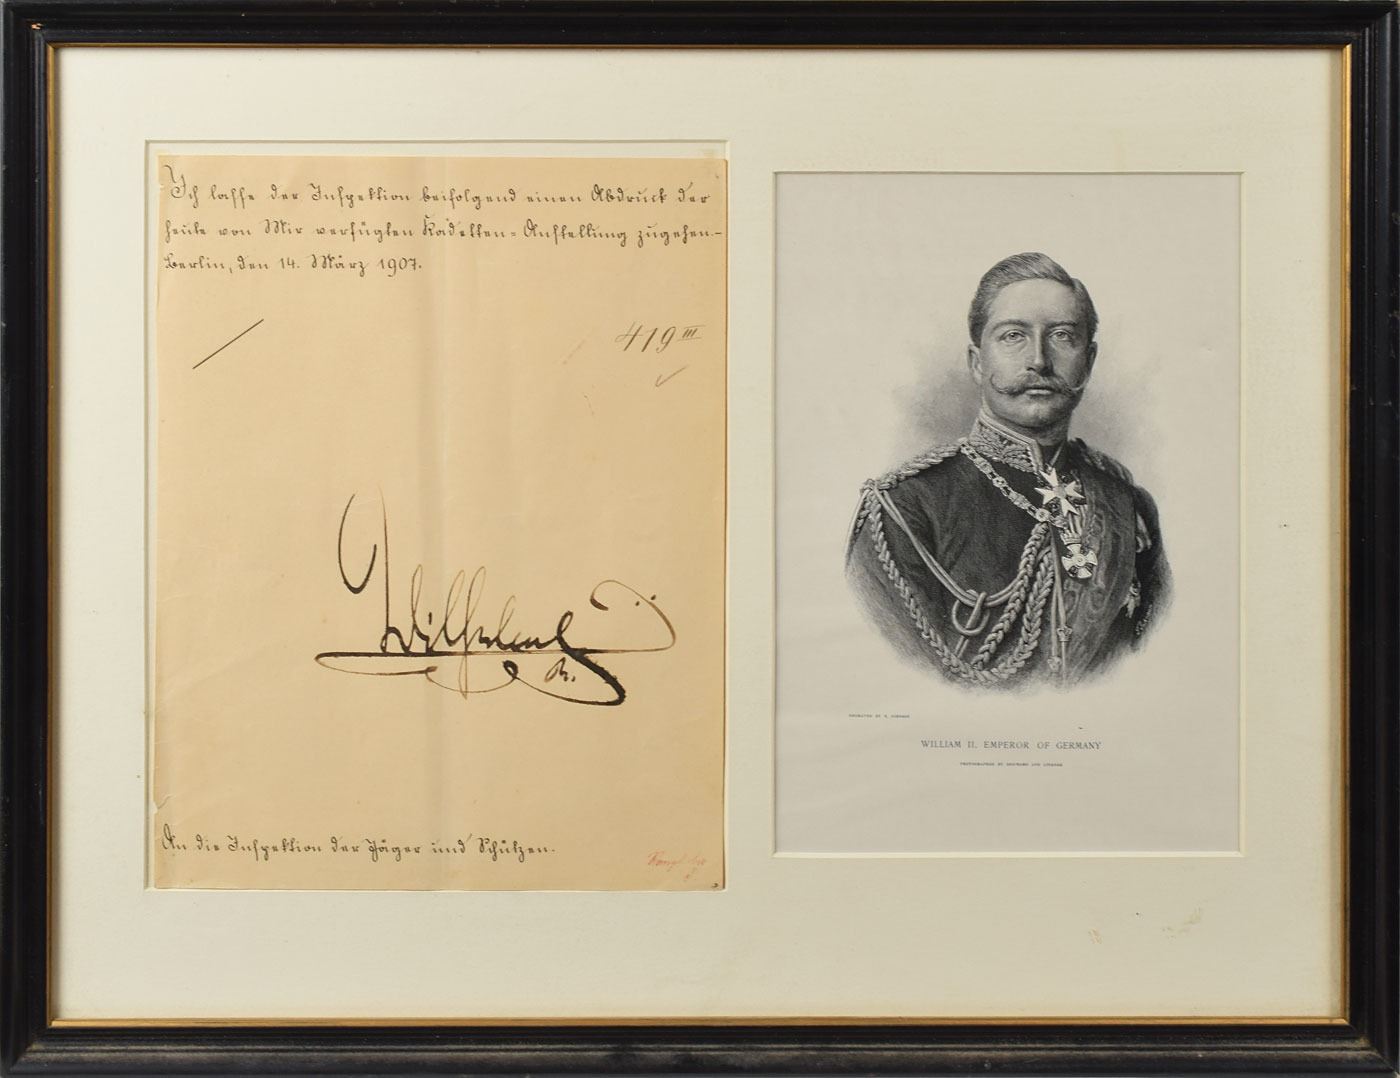 Ich lasse der Inspektion beifolgend einen Abdruck der
heute von Mir verfügten Kadetten-Anstellung zugehen.-
Berlin, den 14. März 1907.
419 III
Wilhelm
R.
An die Inspektion der Jäger und Schützen.
ENGRAVED BY
WILLIAM II, EMPEROR OF GERMANY
PHOTOGRAPHED BY REICHARD UND LINDNER